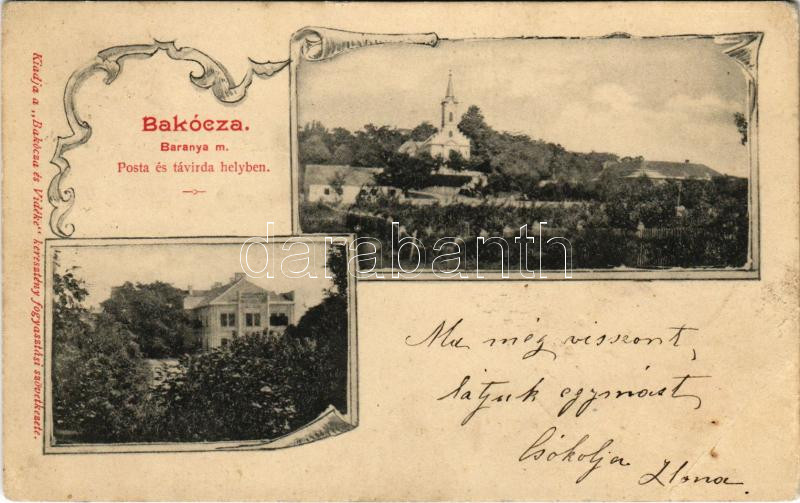 Bakócza.
Baranya m.
Posta és távirda helyben.
Kiadja a „Bakócza és Vidéke" keresztény fogyasztási szövetkezete.
darabanth
Ma még viszont
látjuk egymást
Csókolja Ilona